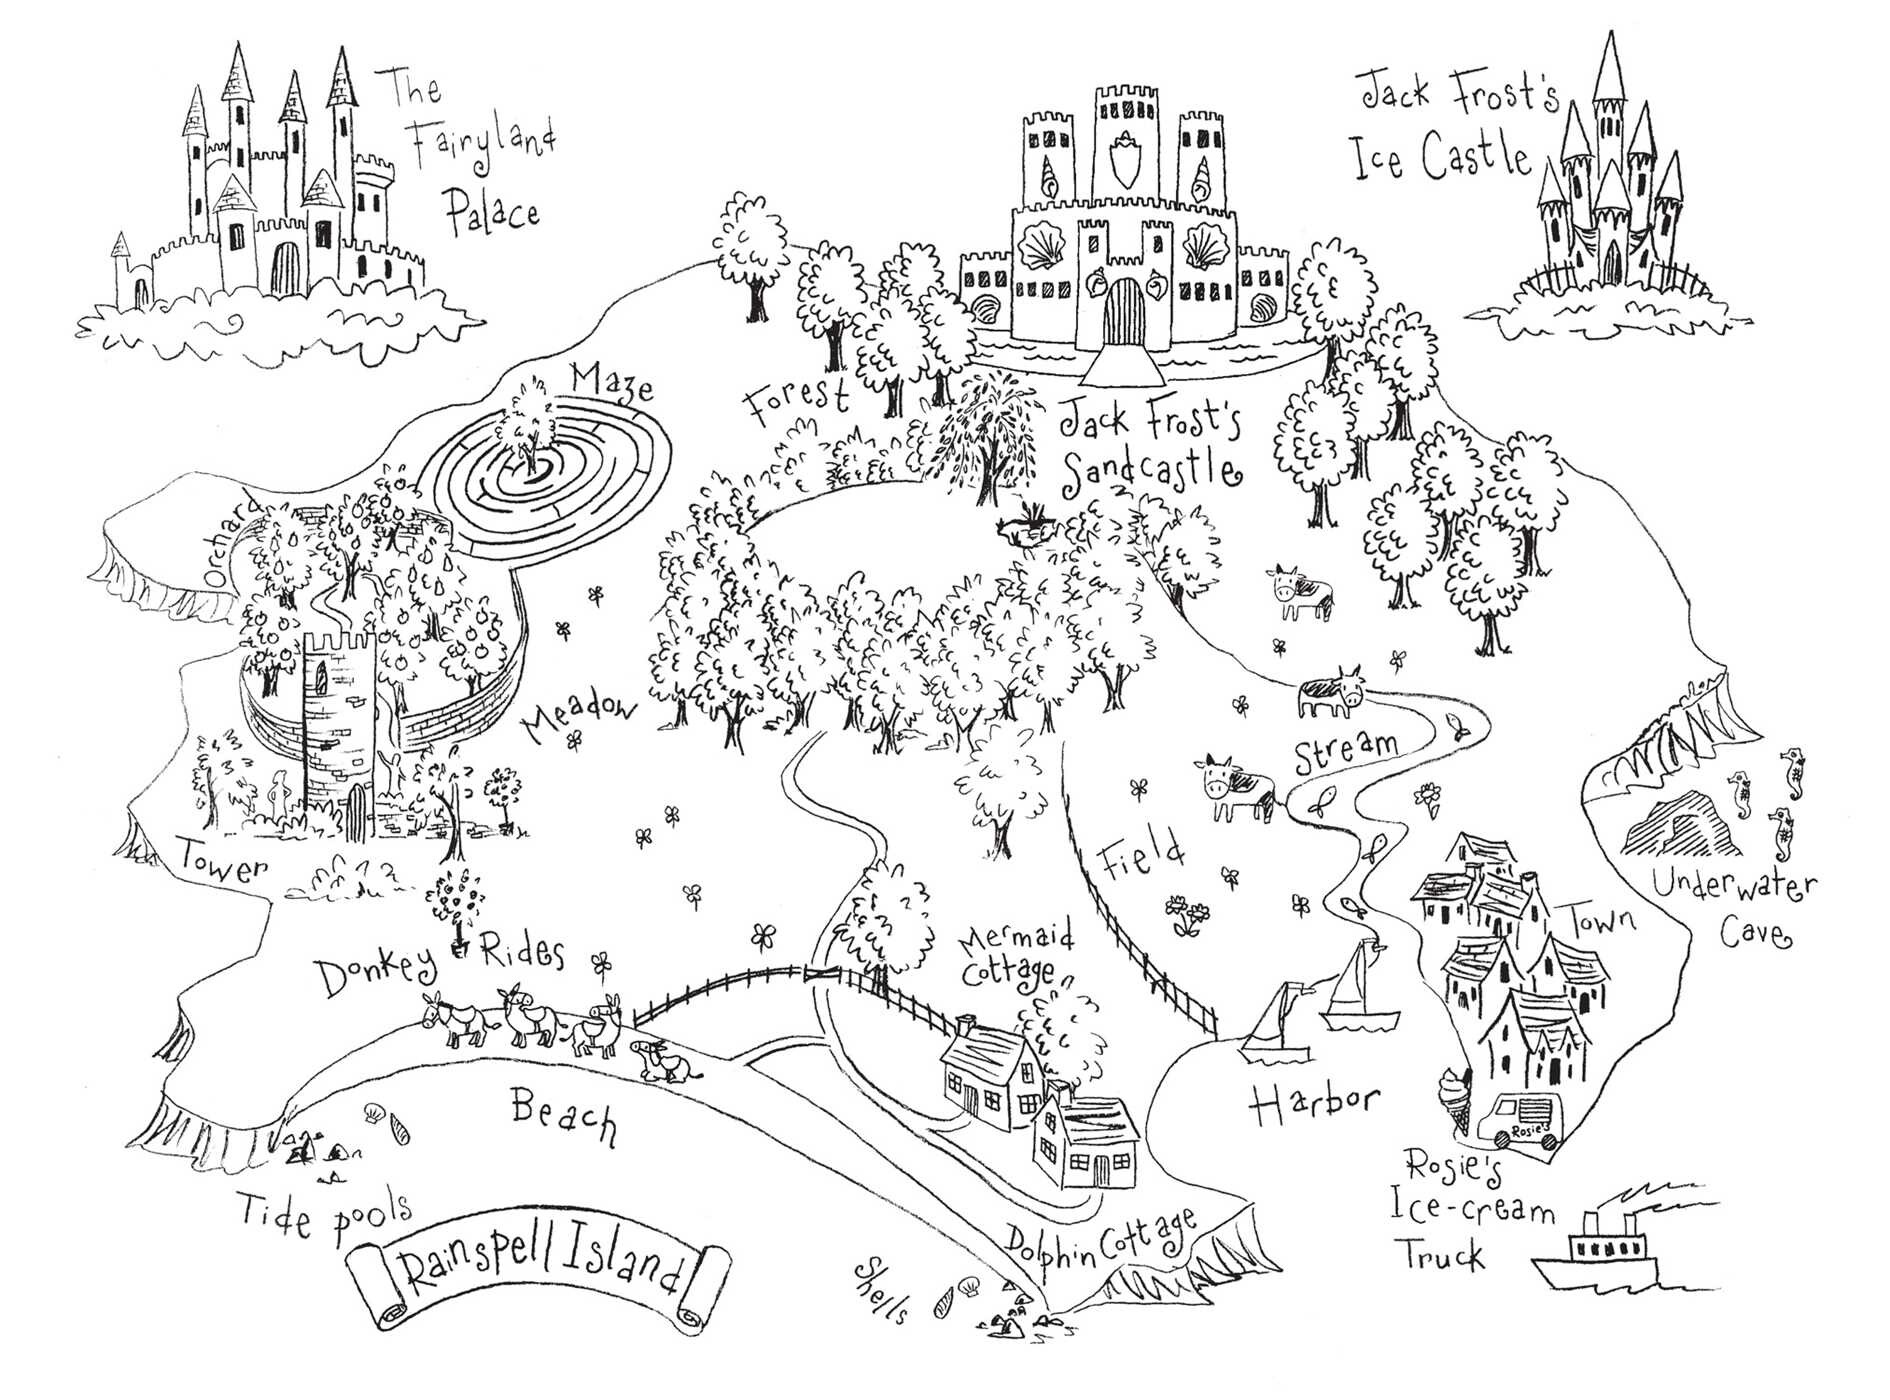 The
Fairyland
Palace
Jack Frost's
Ice Castle
Maze
Forest
Jack Frost's
Sandcastle
Orchard
Meadow
Stream
Tower
Field
Underwater
Cave
Town
Donkey Rides
Mermaid
Cottage
Beach
Harbor
Rosie's
Rosie's
Ice-cream
Truck
Tide pools
Rainspell Island
Dolphin Cottage
Shells